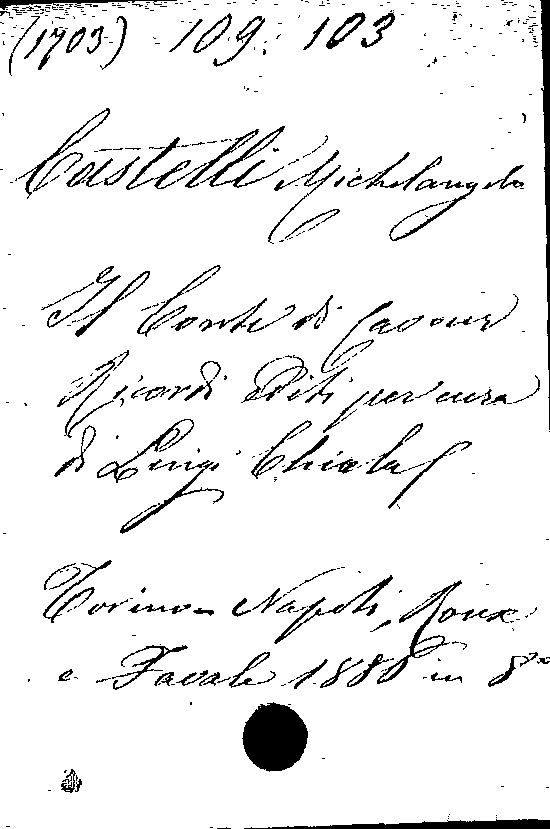 (1703) 109. 103
Castelli Michelangelo
Il Conte di Cavour
Ricordi editi per cura
di Luigi Chiala
Torino-Napoli, Roux
e Favale 1886 in 8°